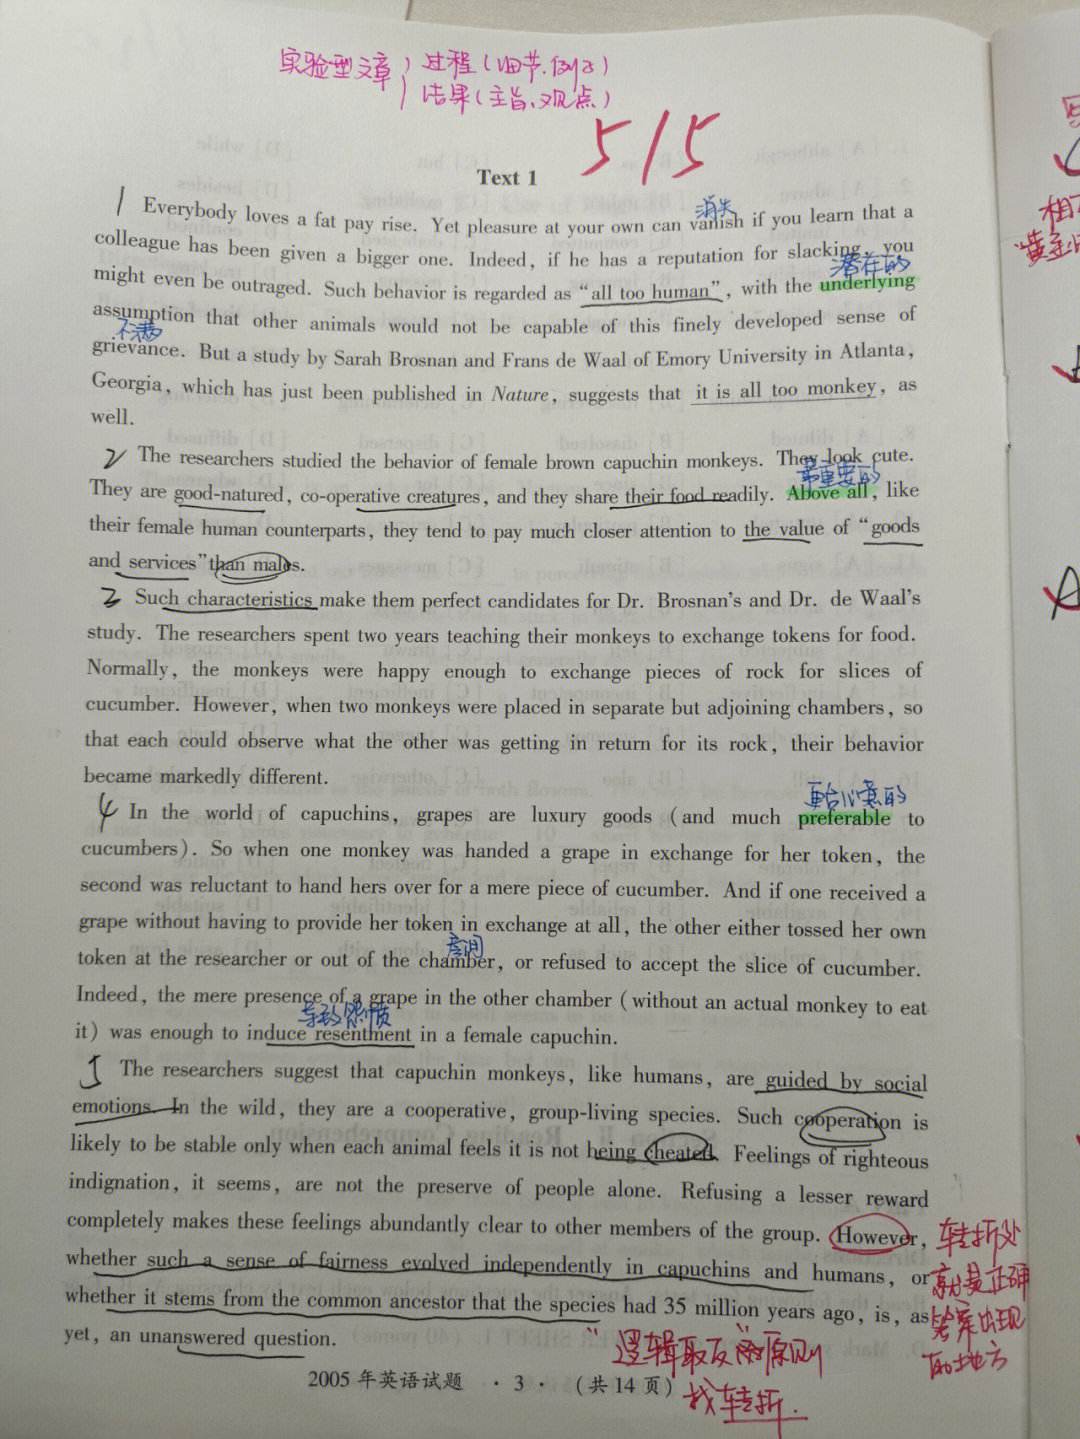 实验型文章 过程(细节、例子)
结果(主旨、观点)
5/5
Text 1
1 Everybody loves a fat pay rise. Yet pleasure at your own can vanish if you learn that a
消失
colleague has been given a bigger one. Indeed, if he has a reputation for slacking, you
潜在的
might even be outraged. Such behavior is regarded as “all too human”, with the underlying
assumption that other animals would not be capable of this finely developed sense of
不满
grievance. But a study by Sarah Brosnan and Frans de Waal of Emory University in Atlanta,
Georgia, which has just been published in Nature, suggests that it is all too monkey, as
well.
2 The researchers studied the behavior of female brown capuchin monkeys. They look cute.
最重要的
They are good-natured, co-operative creatures, and they share their food readily. Above all, like
their female human counterparts, they tend to pay much closer attention to the value of “goods
and services” than males.
3 Such characteristics make them perfect candidates for Dr. Brosnan's and Dr. de Waal's
study. The researchers spent two years teaching their monkeys to exchange tokens for food.
Normally, the monkeys were happy enough to exchange pieces of rock for slices of
cucumber. However, when two monkeys were placed in separate but adjoining chambers, so
that each could observe what the other was getting in return for its rock, their behavior
became markedly different.
更合心意的
4 In the world of capuchins, grapes are luxury goods (and much preferable to
cucumbers). So when one monkey was handed a grape in exchange for her token, the
second was reluctant to hand hers over for a mere piece of cucumber. And if one received a
grape without having to provide her token in exchange at all, the other either tossed her own
房间
token at the researcher or out of the chamber, or refused to accept the slice of cucumber.
Indeed, the mere presence of a grape in the other chamber (without an actual monkey to eat
导致 愤
it) was enough to induce resentment in a female capuchin.
5 The researchers suggest that capuchin monkeys, like humans, are guided by social
emotions. In the wild, they are a cooperative, group-living species. Such cooperation is
likely to be stable only when each animal feels it is not being cheated. Feelings of righteous
indignation, it seems, are not the preserve of people alone. Refusing a lesser reward
completely makes these feelings abundantly clear to other members of the group. However,
whether such a sense of fairness evolved independently in capuchins and humans, or
whether it stems from the common ancestor that the species had 35 million years ago, is, as
yet, an unanswered question.
转折处
就是正确
答案出现
的地方
“逻辑取反”的原则
找转折.
2005 年英语试题 · 3 · (共 14 页)
相
“黄金
A